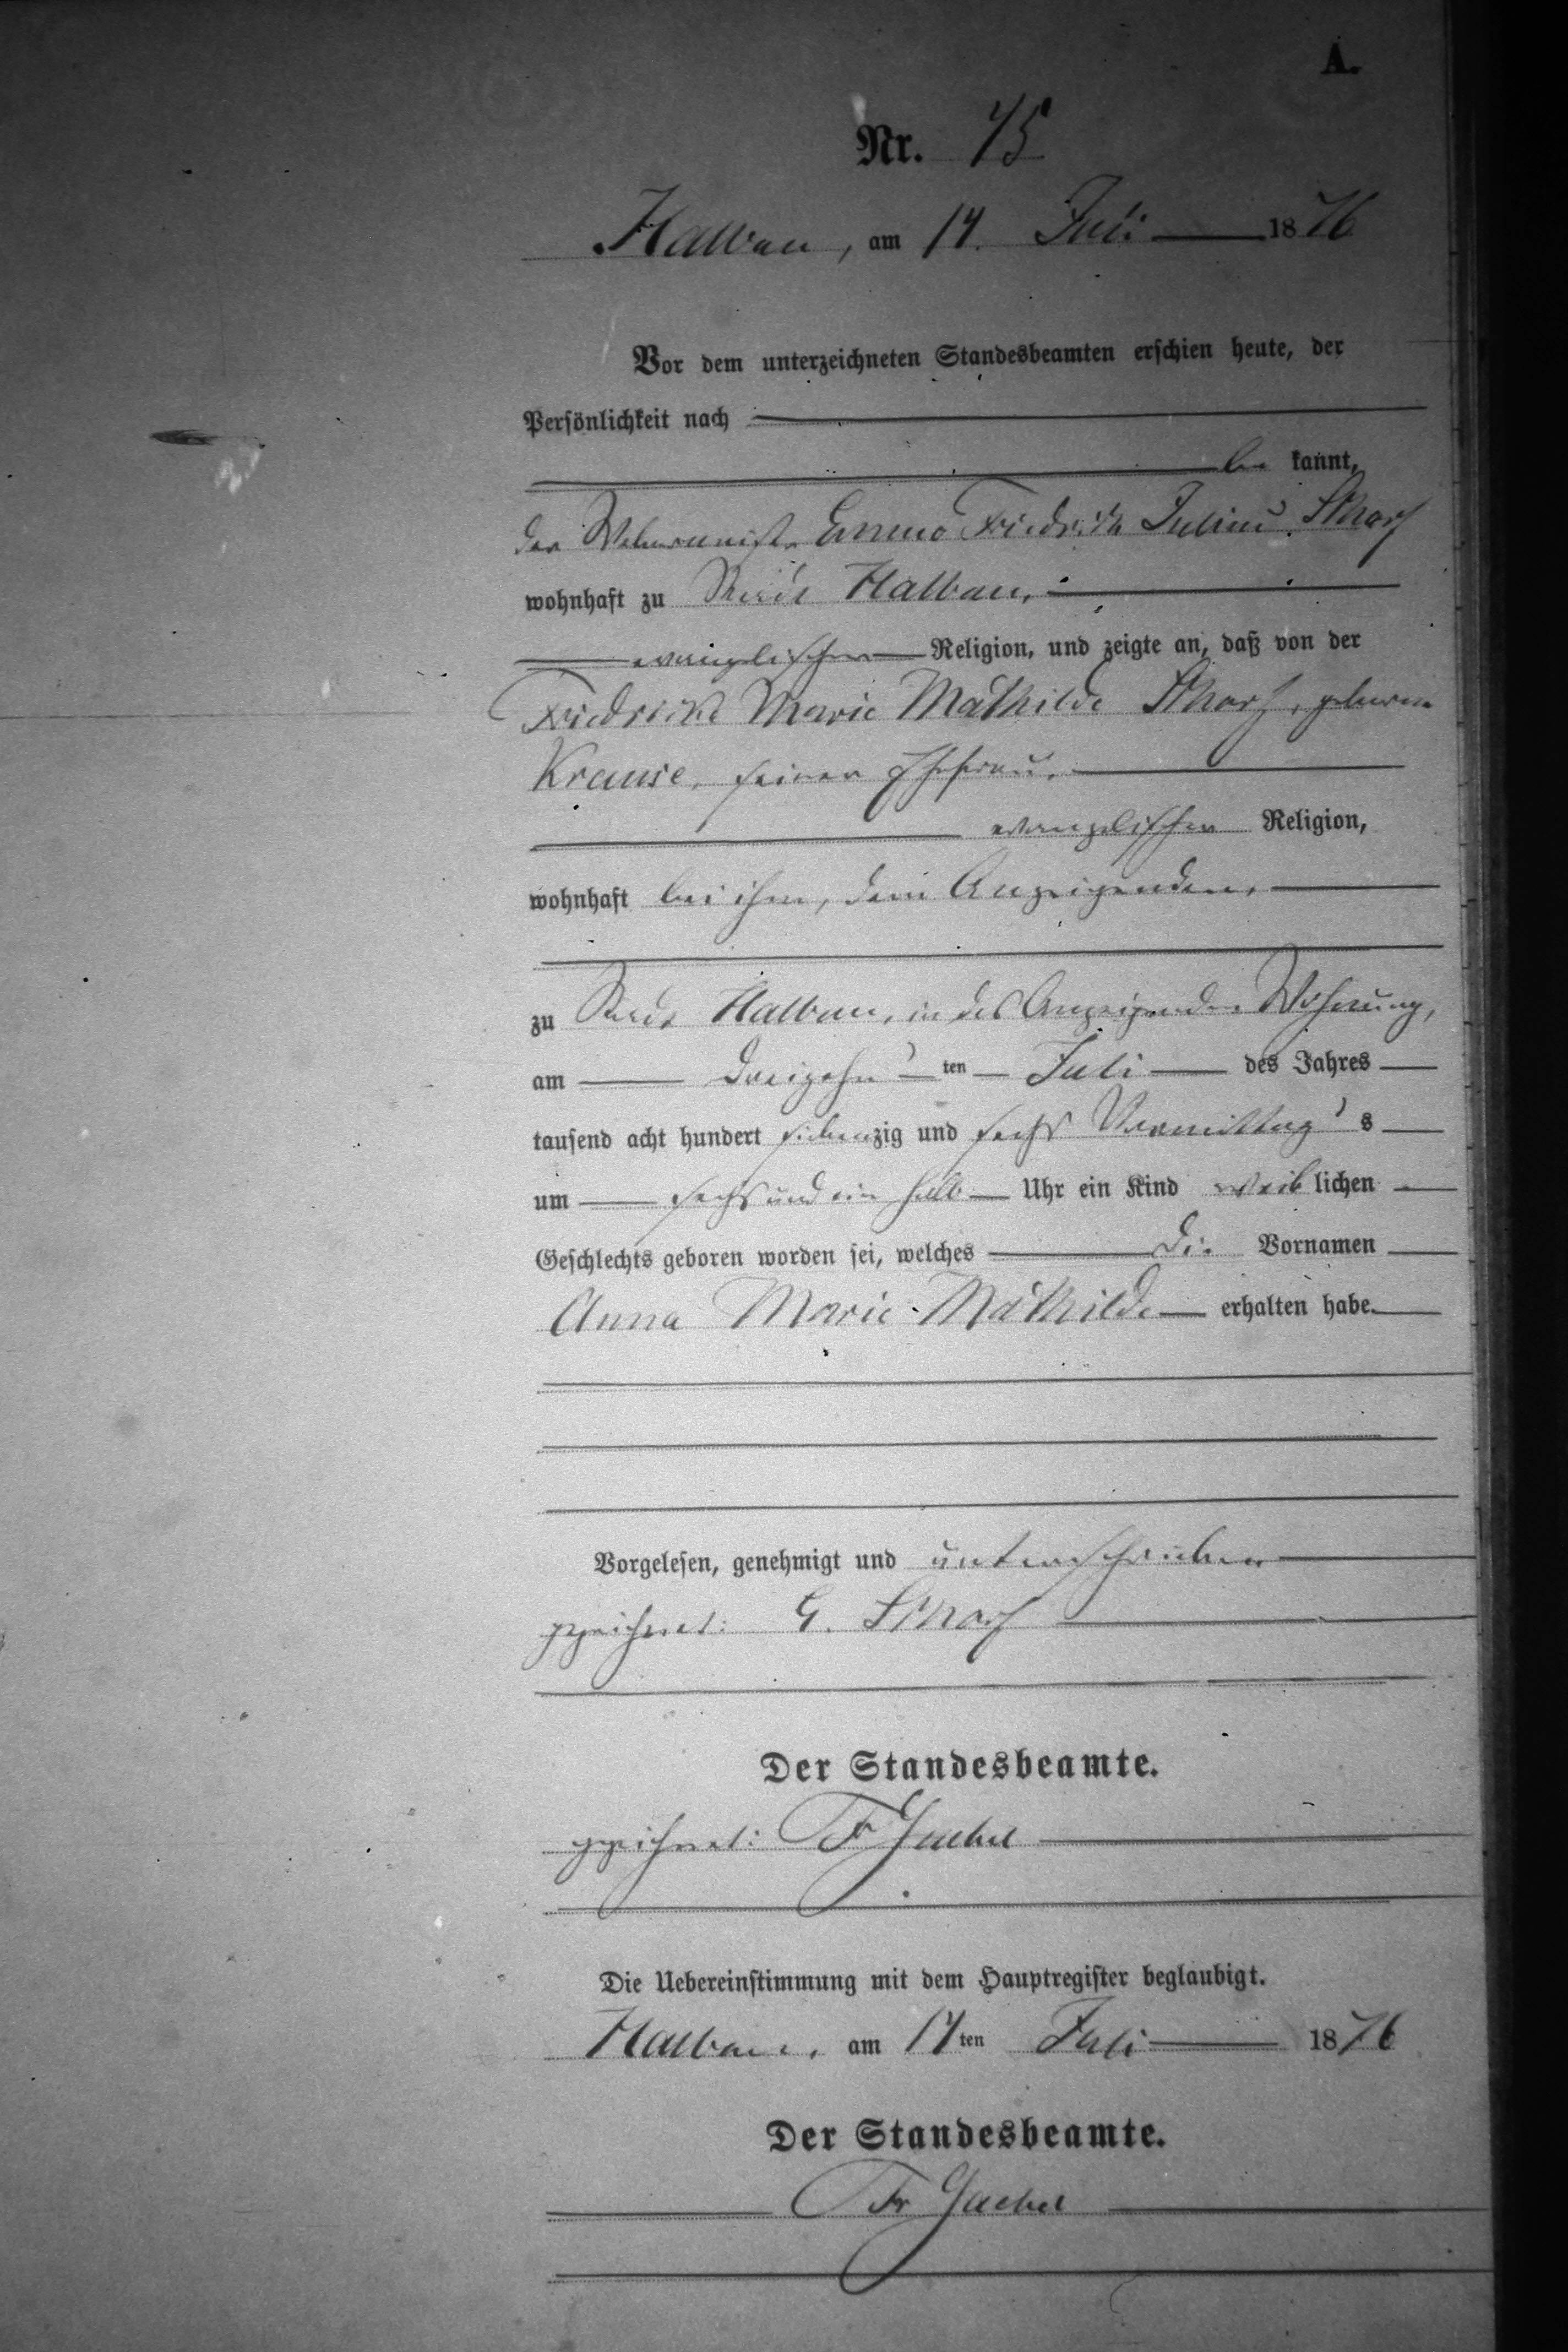 A.
Nr. 75
Halbau, am 14. Juli 1876
Vor dem unterzeichneten Standesbeamten erschien heute, der
Persönlichkeit nach
be kannt,
der Webermeister Emmo Friedrich Julius Scharf
wohnhaft zu Halbau,
evangelischer Religion, und zeigte an, daß von der
Friedricke Marie Mathilde Scharf, geborene
Krause, seiner Ehefrau,
evangelischer Religion,
wohnhaft bei ihm, dem Anzeigenden,
zu Halbau, in des Anzeigenden Wohnung,
am dreizehn ten Juli des Jahres
tausend acht hundert siebenzig und sechs Vormittag s
um sechs und ein halb Uhr ein Kind weib lichen
Geschlechts geboren worden sei, welches die Vornamen
Anna Marie Mathilde erhalten habe.
Vorgelesen, genehmigt und unterschrieben
gezeichnet: E. Scharf
Der Standesbeamte.
gezeichnet: Fr Gaebel
Die Uebereinstimmung mit dem Hauptregister beglaubigt.
Halbau, am 14ten Juli 1876
Der Standesbeamte.
Fr Gaebel